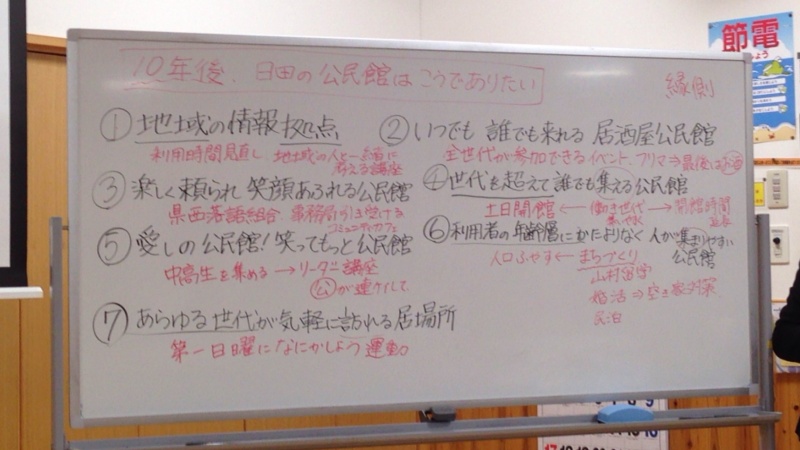 10年後、日田の公民館はこうでありたい
縁側
① 地域の情報拠点
利用時間見直し、地域の人と一緒に
考える講座
② いつでも 誰でも来れる 居酒屋公民館
全世代が参加できるイベント、フリマ⇒最後は
③ 楽しく頼られ 笑顔あふれる公民館
県西落語組合 事務局引き受ける
コミュニティカフェ
④ 世代を超えて誰でも集える公民館
土日開館 ← 働き世代 → 開館時間
延長
⑤ 愛しの公民館!笑ってもっと公民館
中高生を集める → リーダー講座
公が連ケイして
⑥ 利用者の年齢層にかたよりなく 人が集まりやすい
公民館
人口ふやす ← まちづくり
山村留学
婚活 ⇒ 空き家対策
民泊
⑦ あらゆる世代が気軽に訪れる居場所
第一日曜になにかしよう 運動。
節電